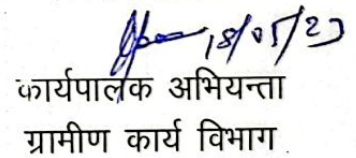 18/05/23
कार्यपालक अभियन्ता
ग्रामीण कार्य विभाग